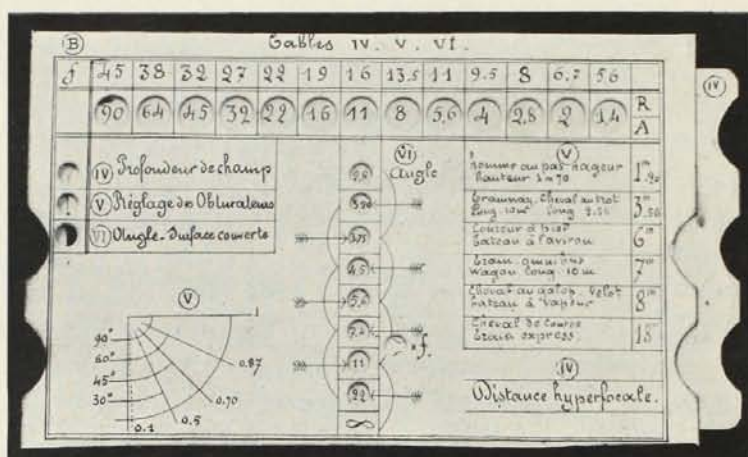 B
Tables IV. V. VI.
IV
f 45 38 32 27 22 19 16 13,5 11 9.5 8 6,7 5,6
90 64 45 32 22 16 11 8 5,6 4 2,8 2 1,4 R
A
IV Profondeur de champ
V Réglage des Obturateurs
VI Angle. Surface couverte
VI
Angle
2,8
11
22
∞
f.
V
Homme au pas. Nageur
hauteur 1m70
Tramway. Cheval au trot
Long. 10m
Coureur à pied
Bateau à l'aviron
6m
Train omnibus
Wagon long. 10m
7m
Cheval au galop. Vélot
Bateau à vapeur
8m
Cheval de course
Train express
IV
Distance hyperfocale.
V
1
90°
60°
45°
30°
0.87
0.70
0.5
0.1